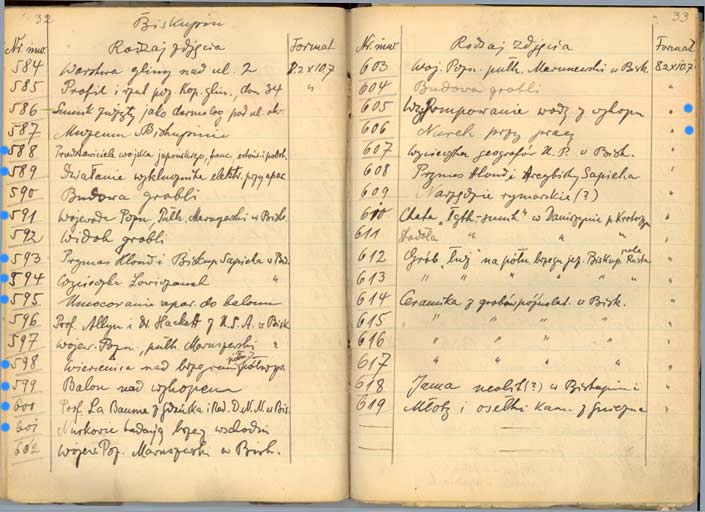 32
Biskupin
Nr. inw. Rodzaj zdjęcia Format
584 Warstwa gliny nad ul. 2 8.2x10,7
585 Profil i rząd poz. kop. glin., dom 34 "
586 zwięzły jako darmolog pod ul.
587 Muzeum Biskupinie
588 Przedstawiciele wojska japońskiego, franc., i
589 Działanie wyklucznika elektr. przy apar.
590 Budowa grobli
591 Wojewoda Pozn., Pułk. Maruszewski w Bisk.
592 Widok grobli
593 Prymas Hlond i Biskup Sapieha w Bisk.
594 Wycieczka Łowiczanek "
595 Umocowanie apar. do balonu
596 Prof. Alleyn i Dr. Hackett z U.S.A. w Bisk
597 Wojew. Pozn., pułk. Maruszewski "
598 Wierzenica nad brzegiem
599 Balon nad wykopem
600 Prof. La Baume z Gdańska i Rad. D.M.M. w Bis.
601 Nurkowie badają brzeg wschodni
602 Wojew. Poz. Maruszewski w Bisk.
33
Nr. inw. Rodzaj zdjęcia Format
603 Woj. Pozn. pułk. Maruszewski w Bisk. 8.2x10.7
604 Budowa grobli "
605 Wypompowanie wody z wykopu "
606 Nurek przy pracy "
607 Wycieczka geografów U.P. w Bisk. "
608 Prymas Hlond i Arcybiskup Sapieha "
609 Narzędzie rymarskie (?) "
610 Chata w p. Krotoszyn "
611 Stodoła " " " "
612 Grób "łuż" na półn. brzegu jez. Biskup. "
613 " " " " " " "
614 Ceramika z grobów późnolat. w Bisk. "
615 " " " " "
616 " " " "
617 " " " "
618 Jama neolit (?) w Biskupinie "
619 Młoty i osełki kam. z Gniezna "